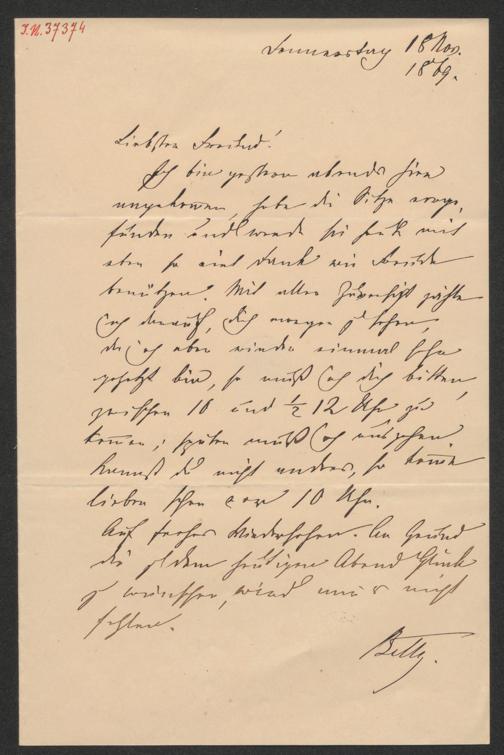 I.N. 37374
Donnerstag 18 Nov.
1869.
Liebster Freund!
Ich bin gestern abends hier
angekommen, habe die Sitze vorge-
funden und werde sie heute mit
eben so viel Dank wie Freude
benützen. Mit aller Zuversicht zähle
ich darauf, dich morgen zu sehen,
da ich aber wieder einmal sehr
gehetzt bin, so muß ich dich bitten,
zwischen 10 und ½ 12 Uhr zu
kommen; später muß ich ausgehen.
Kannst du nicht anders, so komme
lieber schon vor 10 Uhr.
Auf frohes Wiedersehen. An Grund
dir zu dem heutigen Abend Glück
zu wünschen, wird mir's nicht
fehlen.
Betty.